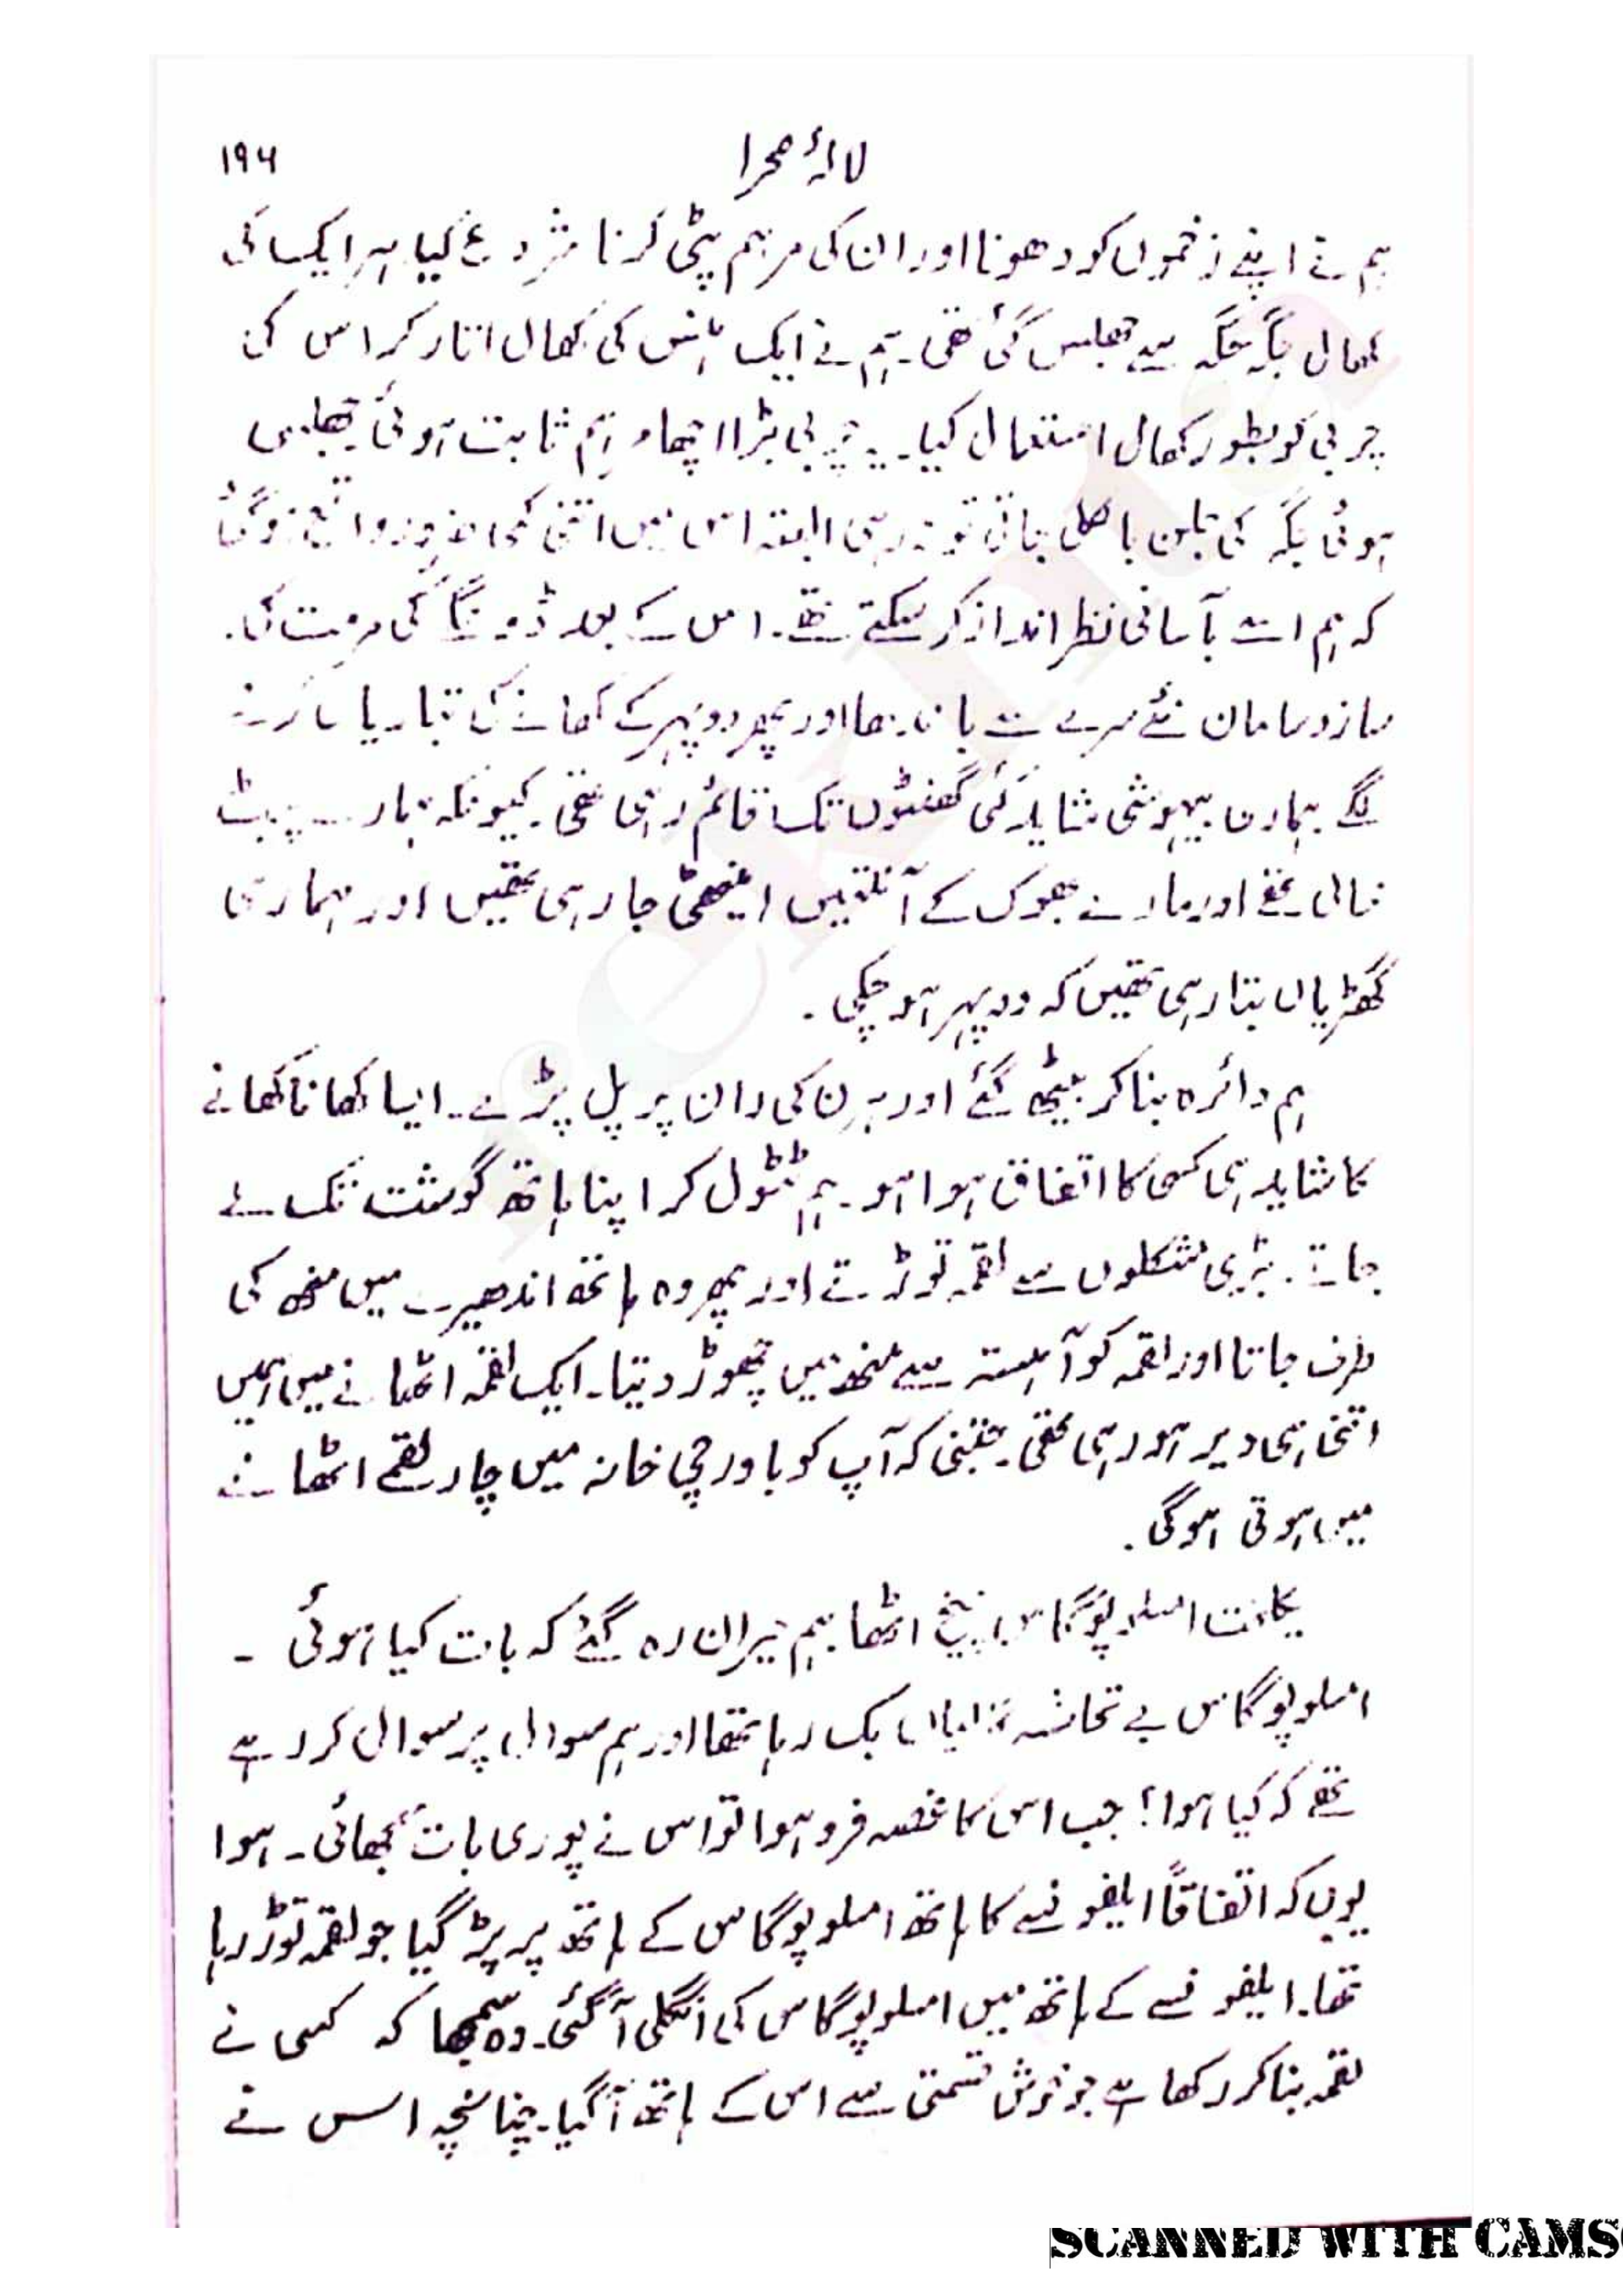 لالۂ صحرا ۱۹۶
ہم نے اپنے زخموں کو دھونا اور ان کی مرہم پٹی کرنا شروع کیا۔ ہر ایک کی
کھال جگہ جگہ سے جھلس گئی تھی۔ ہم نے ایک کی کھال اتار کر اس کی
چربی کو بطور کھال استعمال کیا۔ یہ چربی بڑا اچھا مرہم ثابت ہوئی۔ جھلسی
ہوئی جگہ کی جلن بالکل جاتی تو نہ رہی البتہ اس میں اتنی کمی ضرور واقع ہو گئی
کہ ہم اسے بآسانی نظر انداز کر سکتے تھے۔ اس کے بعد ڈونگا کی مرمت کی۔
سازو سامان نئے سرے سے باندھا اور پھر دوپہر کے کھانے کی تیاریاں کرنے
لگے۔ ہماری بیہوشی شاید کئی گھنٹوں تک قائم رہی تھی۔ کیونکہ ہمارے پیٹ
خالی تھے اور مارے بھوک کے آنتیں اینٹھی جا رہی تھیں اور ہماری
گھڑیاں بتا رہی تھیں کہ دوپہر ہو چکی۔
ہم دائرہ بنا کر بیٹھ گئے اور ہرن کی ران پر پل پڑے۔ ایسا کھانا کھانے
کا شاید ہی کسی کا اتفاق ہوا ہو۔ ہم ٹٹول کر اپنا ہاتھ گوشت تک لے
جاتے۔ بڑی مشکلوں سے لقمہ توڑتے اور پھر وہ ہاتھ اندھیرے میں منھ کی
طرف جاتا اور لقمہ کو آہستہ سے منھ میں چھوڑ دیتا۔ ایک لقمہ اٹھانے میں ہمیں
اتنی ہی دیر ہو رہی تھی۔ جتنی کہ آپ کو باورچی خانہ میں چار لقمے اٹھانے
میں ہوتی ہوگی۔
یکلخت امسلوپوگاس چیخ اٹھا۔ ہم حیران رہ گئے کہ بات کیا ہوئی۔
امسلوپوگاس بے تحاشہ گالیاں بک رہا تھا اور ہم سوال پر سوال کر رہے
تھے کہ کیا ہوا؟ جب اس کا غصہ فرو ہوا تو اس نے پوری بات سمجھائی۔ ہوا
یوں کہ اتفاقاً ایلفونسے کا ہاتھ امسلوپوگاس کے ہاتھ پر پڑ گیا جو لقمہ توڑ رہا
تھا۔ ایلفونسے کے ہاتھ میں امسلوپوگاس کی انگلی آ گئی۔ وہ سمجھا کہ کسی نے
لقمہ بنا کر رکھا ہے جو خوش قسمتی سے اس کے ہاتھ آ گیا۔ چنانچہ اس نے
SCANNED WITH CAMS